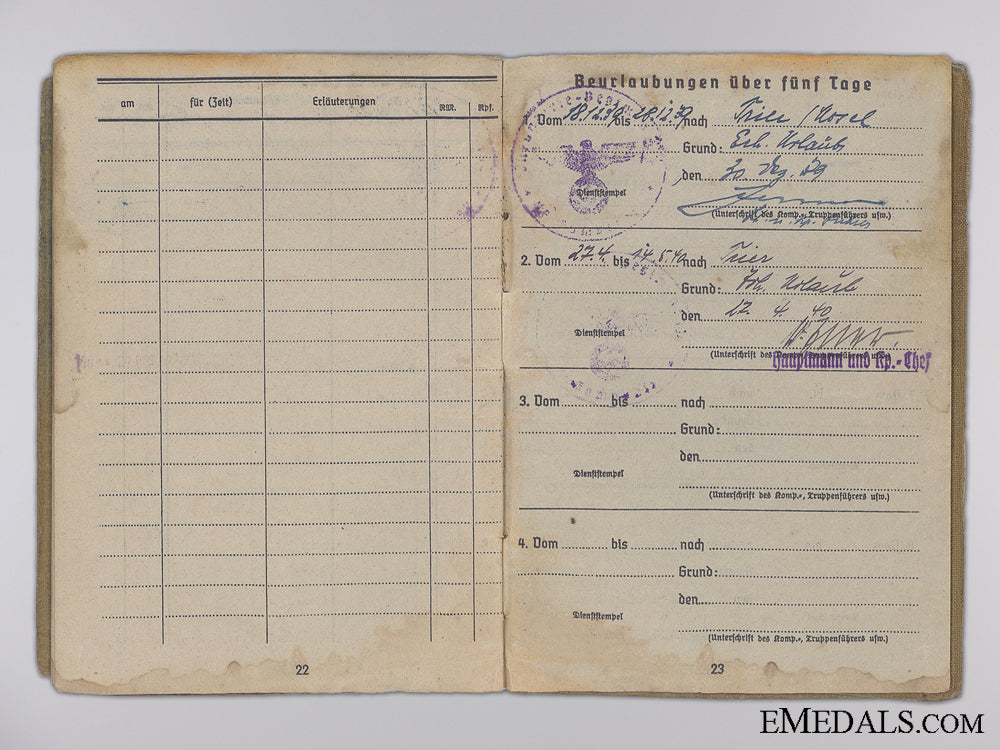 am für (Zeit) Erläuterungen RM. Rpf.
22
Beurlaubungen über fünf Tage
Vom 18.12.39 bis 28.12.39 nach Trier / Mosel
Grund: Erh. Urlaub
Dienststempel
den 20 Dez. 39
(Unterschrift des Komp.-, Truppenführers usw.)
2. Vom 27.4. bis 14.5.40 nach Trier
Grund: Erh. Urlaub
den 27. 4. 40
Dienststempel
(Unterschrift des Komp.-, Truppenführers usw.)
Hauptmann und Kp.-Chef
3. Vom bis nach
Grund:
den
Dienststempel
(Unterschrift des Komp.-, Truppenführers usw.)
4. Vom bis nach
Grund:
den
Dienststempel
(Unterschrift des Komp.-, Truppenführers usw.)
23
EMEDALS.COM